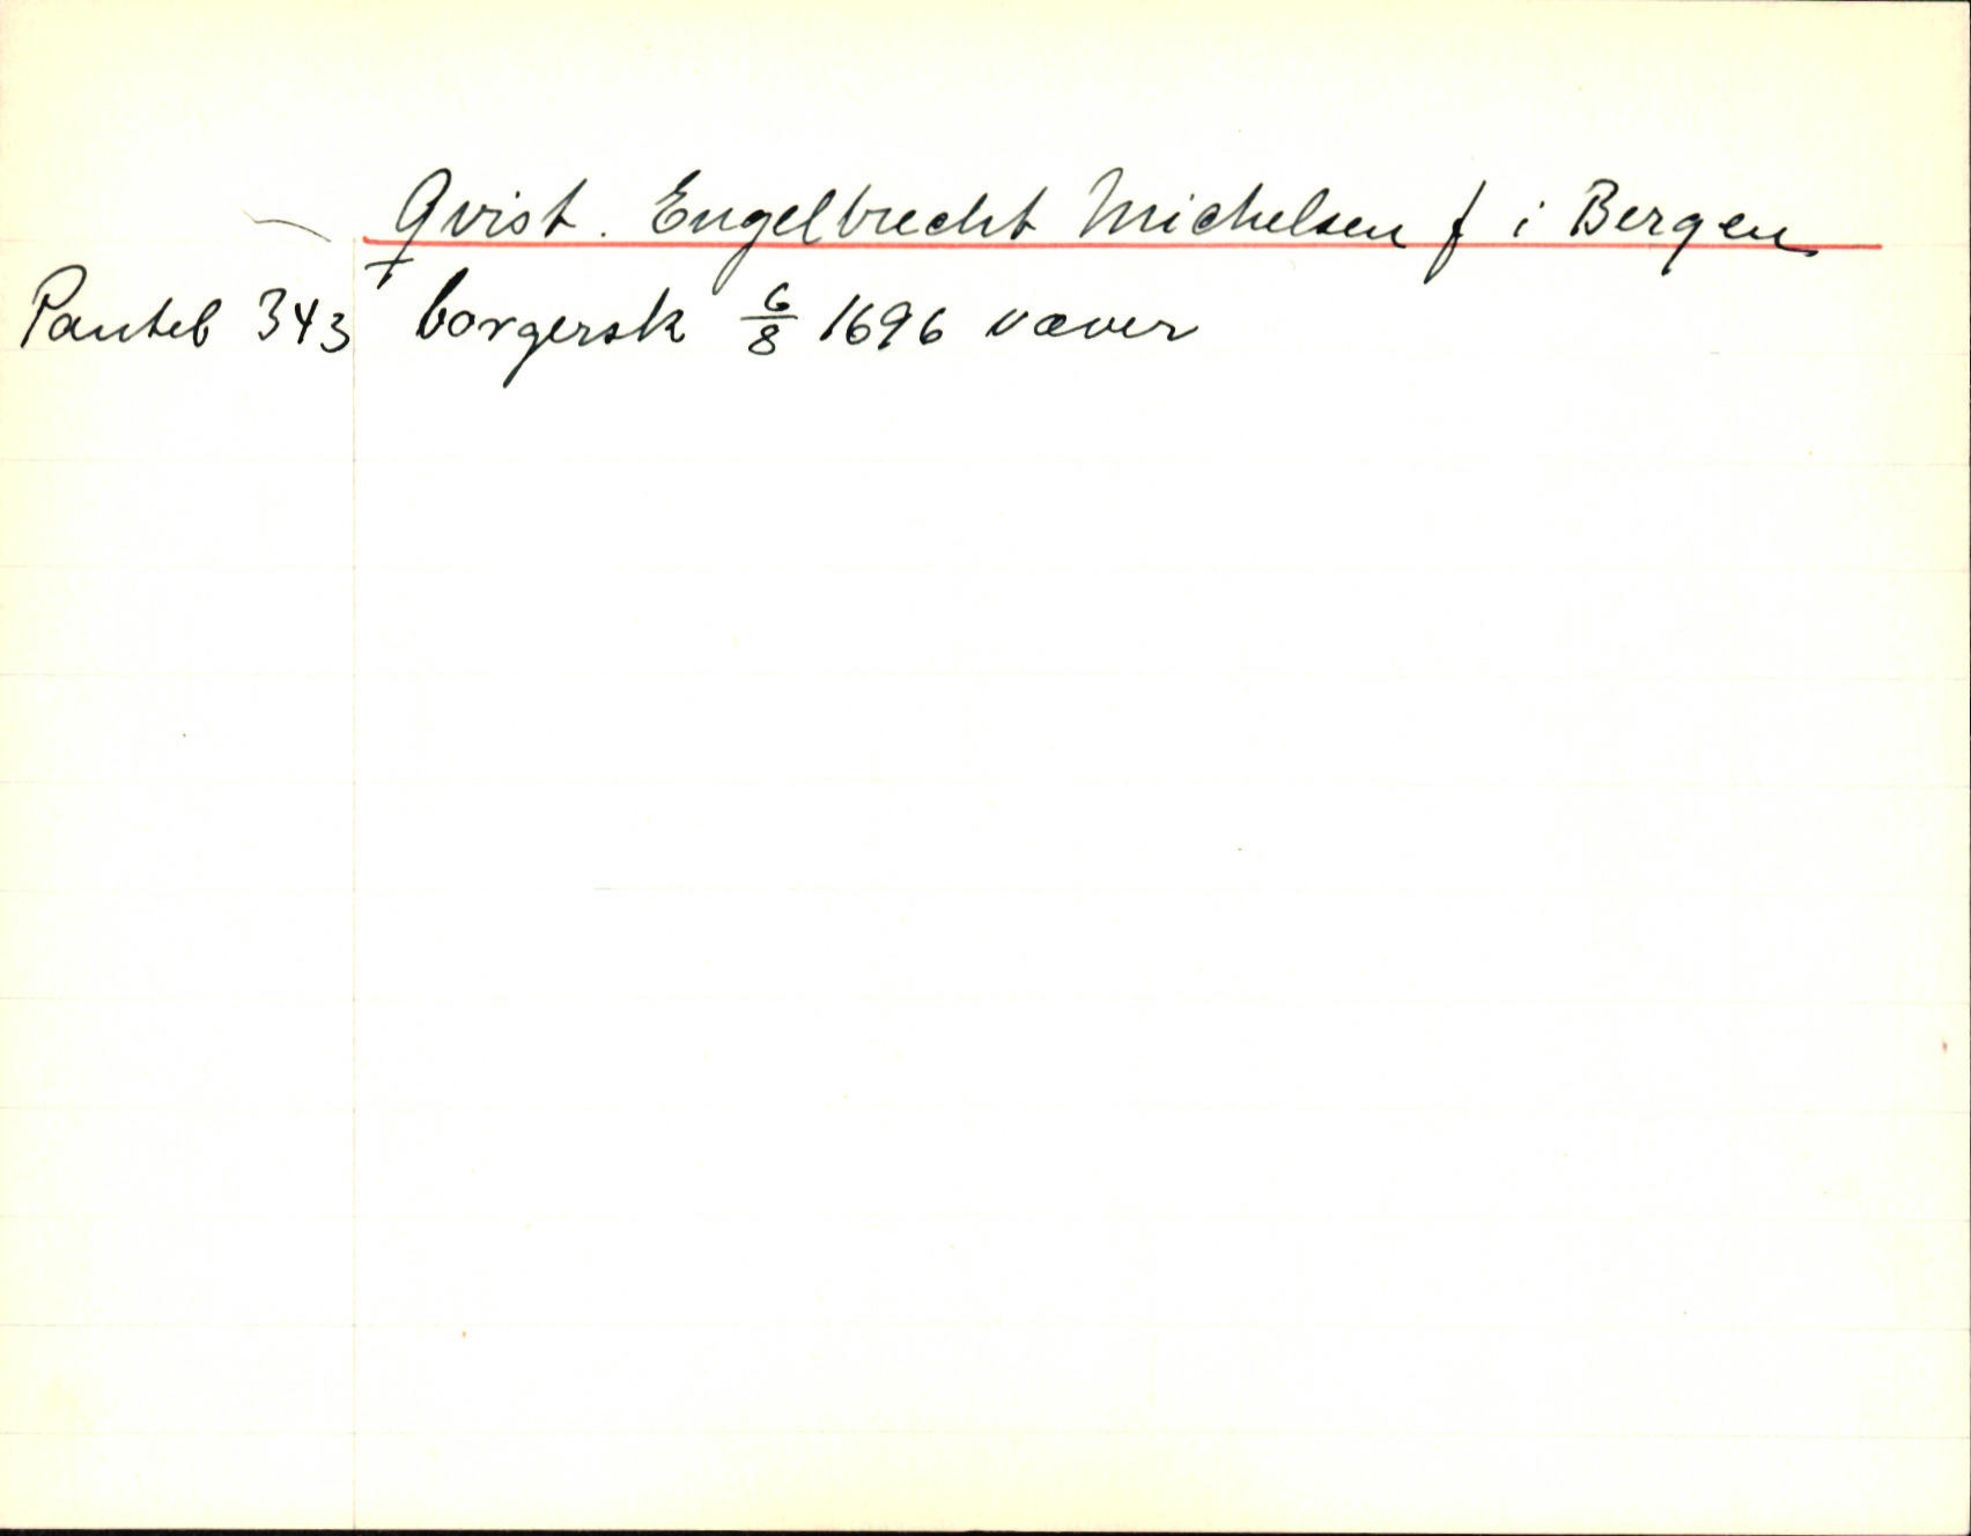 Qvist. Engelbrecht Michelsen f i Bergen
Panteb 343 borgersk 6/8 1696 væver